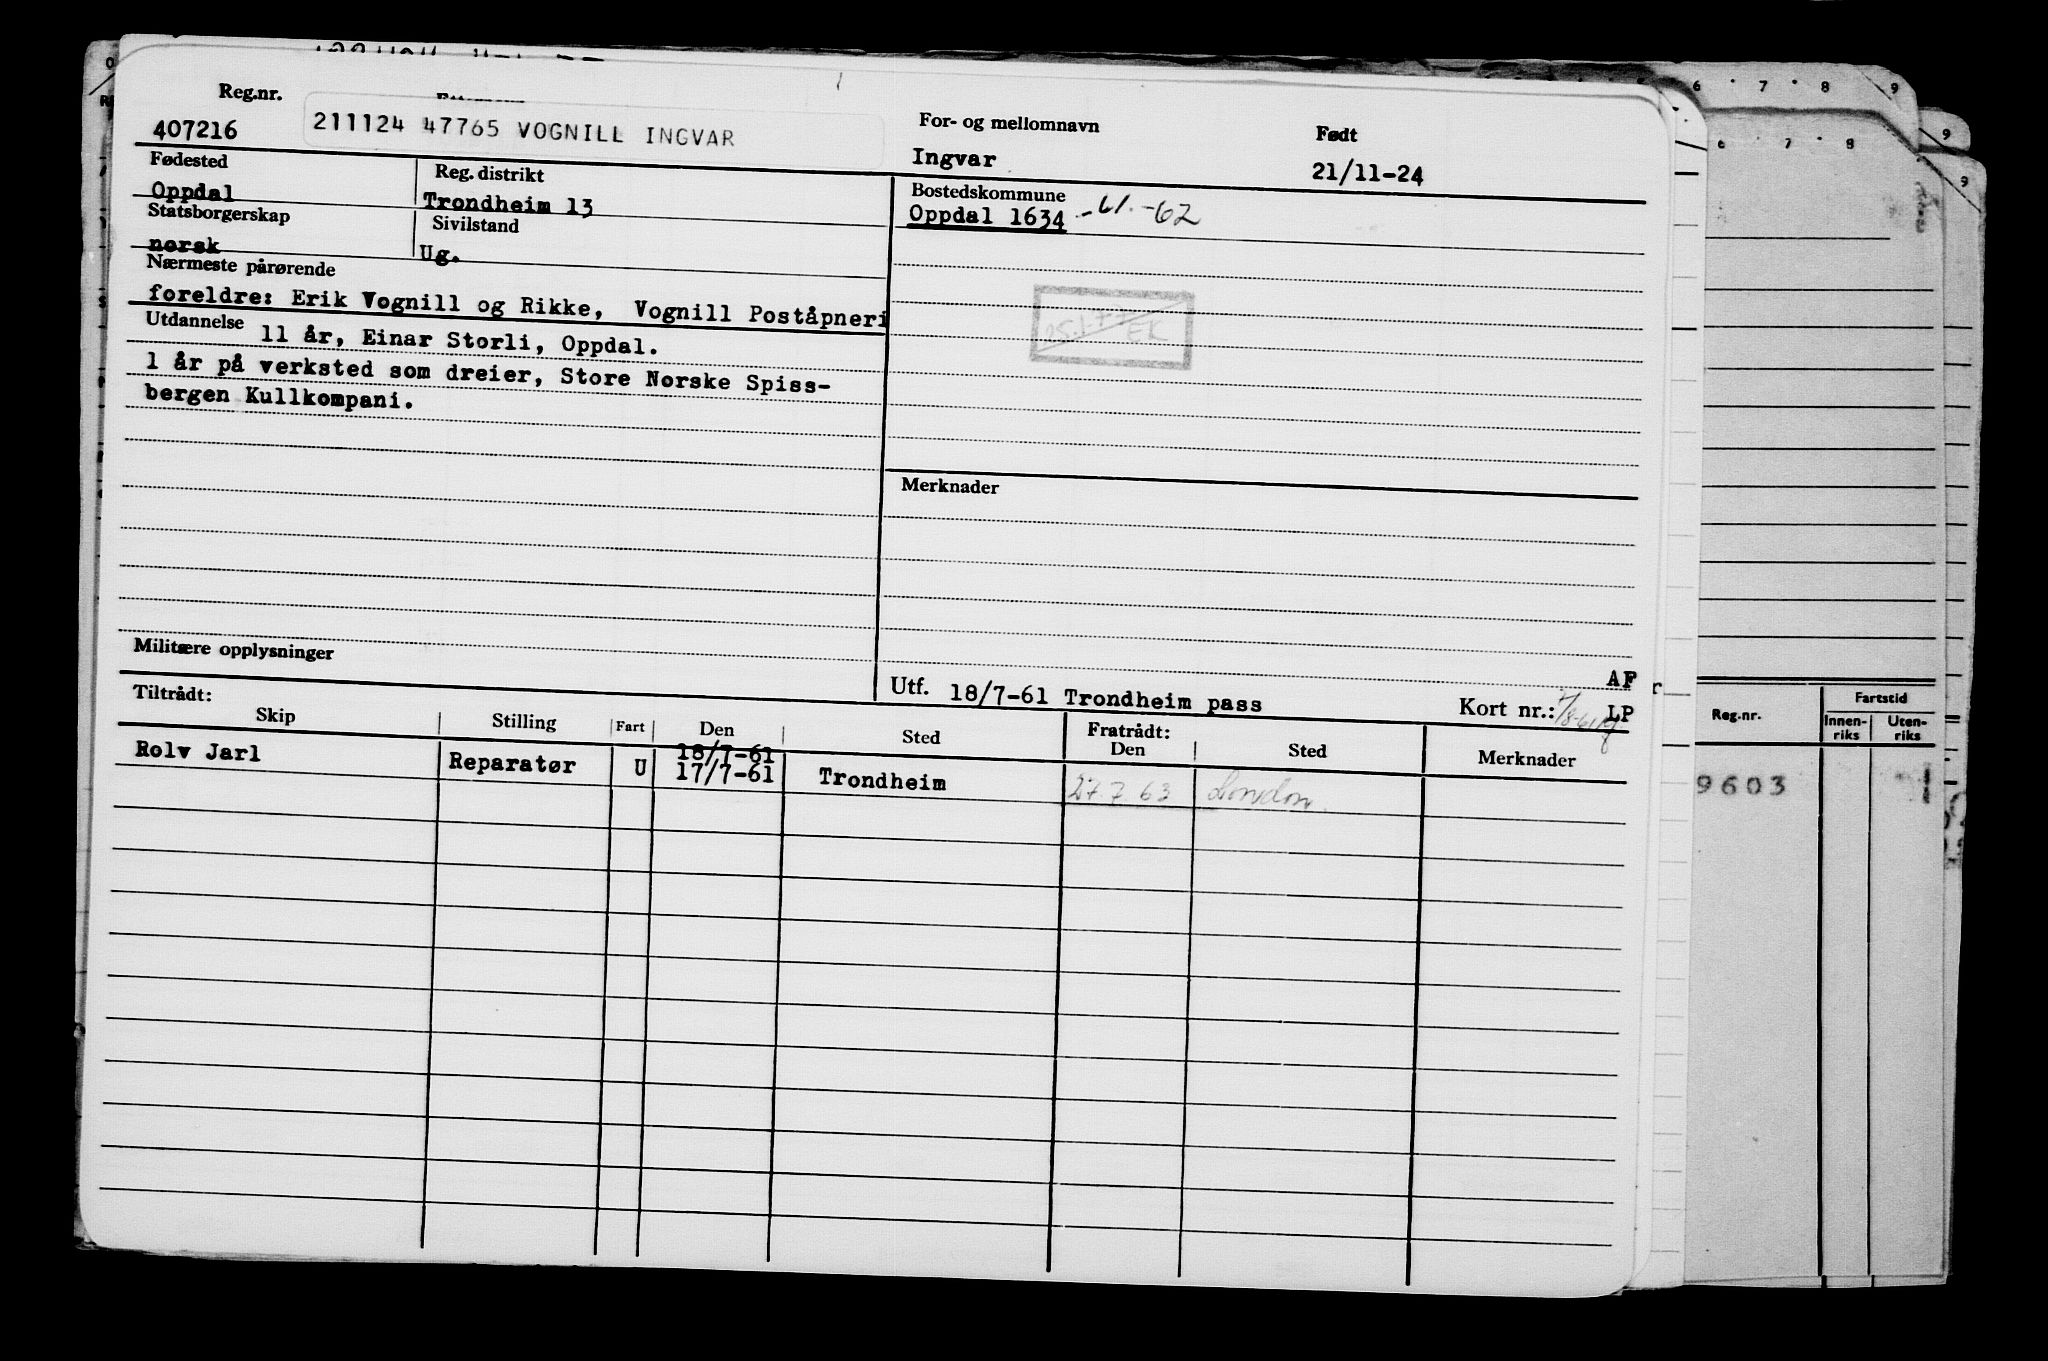 Reg.nr.
407216
211124 47765 VOGNILL INGVAR
For- og mellomnavn
Ingvar
Født
21/11-24
Fødested
Oppdal
Reg. distrikt
Trondheim 13
Bostedskommune
Oppdal 1634 -61.-62
Statsborgerskap
norsk
Sivilstand
Ug.
Nærmeste pårørende
foreldre: Erik Vognill og Rikke, Vognill Poståpneri
Utdannelse 11 år, Einar Storli, Oppdal.
1 år på verksted som dreier, Store Norske Spiss-
bergen Kullkompani.
EK
Merknader
Militære opplysninger
AF
Utf. 18/7-61 Trondheim pass
Kort nr.:
LP
Tiltrådt:
Skip Stilling Fart Den Sted
Fratrådt:
Den Sted Merknader
18/7-61
Rolv Jarl Reparatør U 17/7-61 Trondheim 27.7.63 London
6 7 8 9
6 7 8 9
9
Reg.nr.
Fartstid
Innen-
riks
Uten-
riks
9603